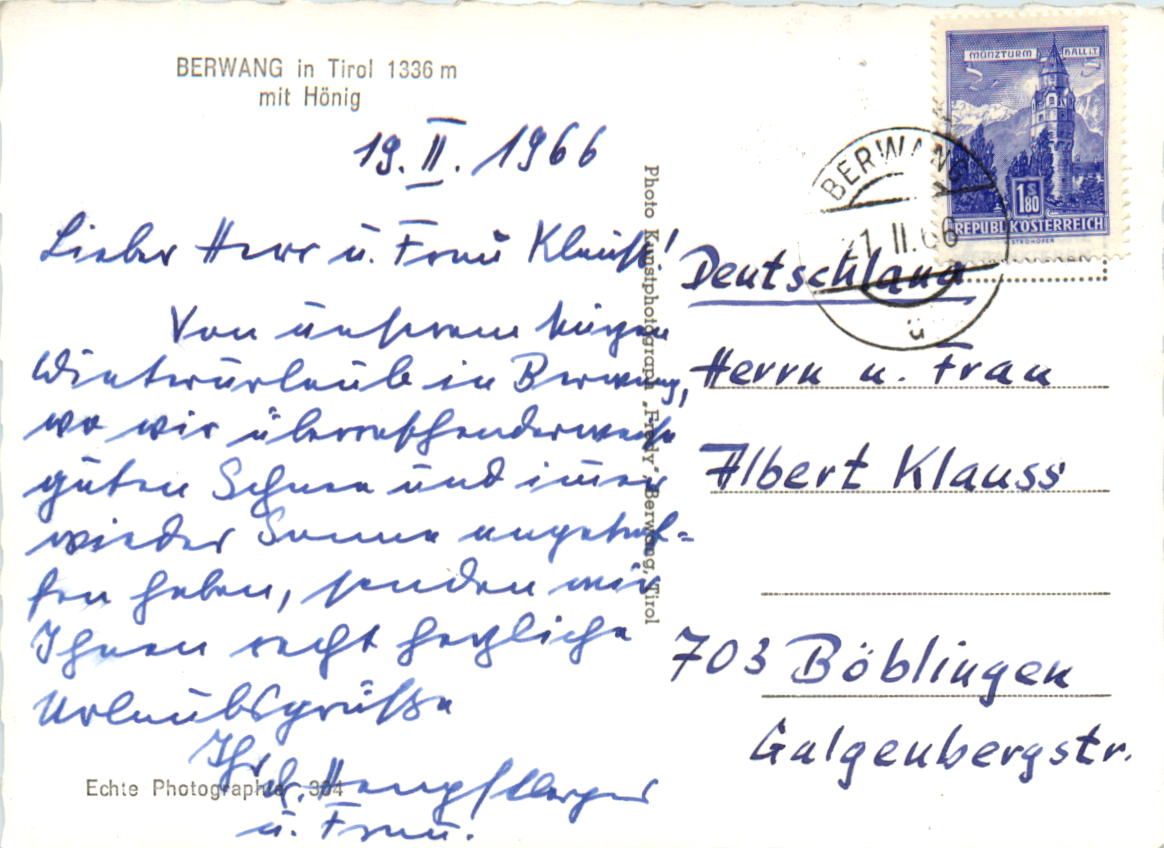 BERWANG in Tirol 1336 m
mit Hönig
19. II. 1966
Lieber Herr u. Frau Klauß!
Von unserem kurzen
Winterurlaub in Berwang,
wo wir überraschenderweise
guten Schnee und immer
wieder Sonne angetrof=
fen haben, senden wir
Ihnen recht herzliche
Urlaubsgrüße
Ihr
u. Frau.
Echte Photographie 304
Photo Kunstphotograph „Fredy", Berwang, Tirol
MÜNZTURM HALL i.T.
1 S 80
REPUBLIK ÖSTERREICH
STROHOFER
BERWANG
21. II. 66
a
Deutschland
Herrn u. Frau
Albert Klauss
703 Böblingen
Galgenbergstr.